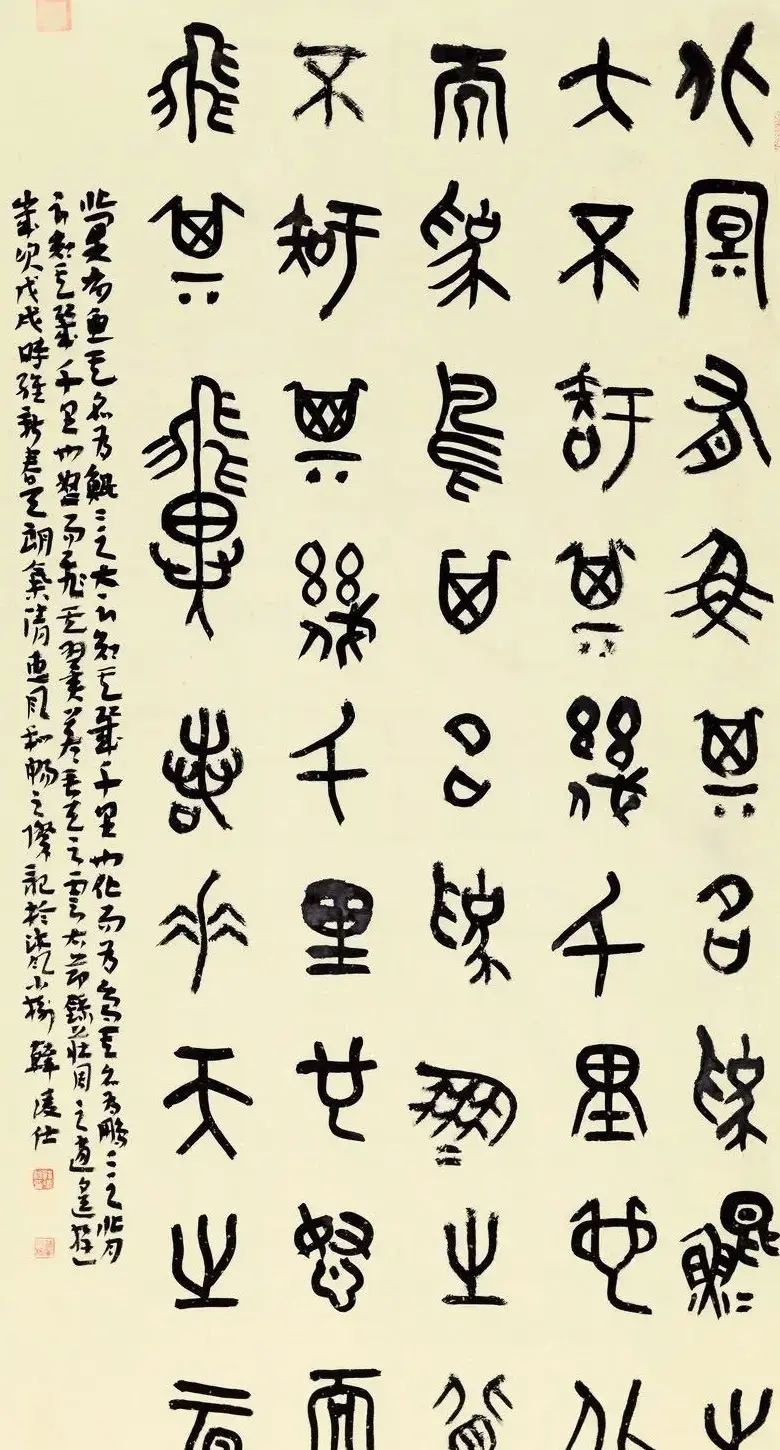 北冥有魚其名為鯤=之
大不知其幾千里也化
而為鳥其名為鵬=之背
不知其幾千里也怒而
飛其翼若垂天之雲
北冥有魚其名為鯤=之大不知其幾千里也化而為鳥其名為鵬=之背
不知其幾千里也怒而飛其翼若垂天之雲右節錄莊周之逍遙遊
歲次戊戌時維新春天朗氣清惠風和暢之際記於風小榭韓凌仕